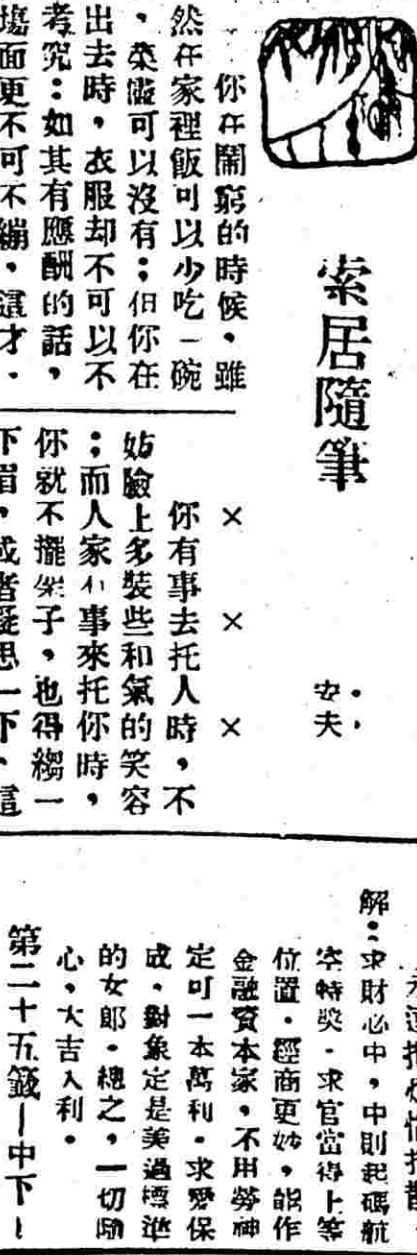 索居隨筆
安夫
你在鬧窮的時候，雖
然在家裡飯可以少吃一碗
，菜儘可以沒有；但你在
出去時，衣服却不可以不
考究：如其有應酬的話，
塲面更不可不綳，這才．
×　×　×
你有事去托人時，不
妨臉上多裝些和氣的笑容
；而人家有事來托你時，
你就不擺架子，也得縐一
下眉，或者凝思一下，這
解：求財必中，中則起碼航
空特獎．求官當得上等
位置．經商更妙，能作
金融資本家，不用勞神
定可一本萬利．求愛保
成．對象定是美過標準
的女郎．總之，一切順
心，大吉大利．
第二十五籤—中下—